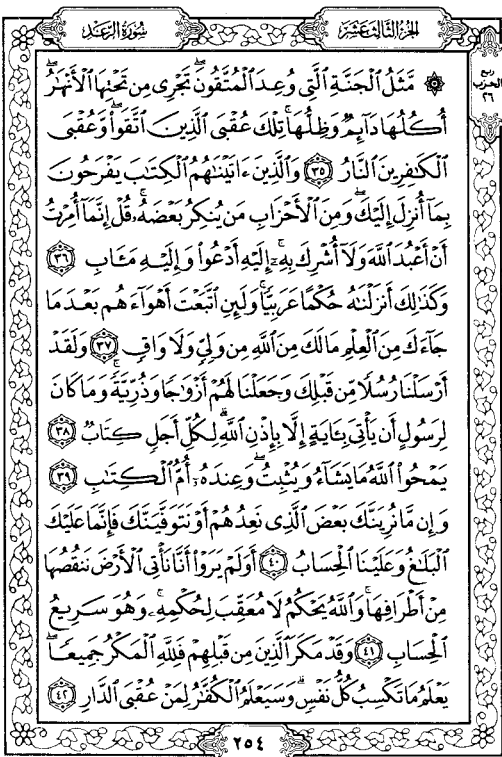 سُورَةُ الرَّعْدِ
الجُزْءُ الثَّالِثَ عَشَرَ
ربع
الحزب
٢٦
۞ مَّثَلُ ٱلْجَنَّةِ ٱلَّتِى وُعِدَ ٱلْمُتَّقُونَۖ تَجْرِى مِن تَحْتِهَا ٱلْأَنْهَٰرُۖ
أُكُلُهَا دَآئِمٌ وَظِلُّهَاۚ تِلْكَ عُقْبَى ٱلَّذِينَ ٱتَّقَوا۟ۖ وَّعُقْبَى
ٱلْكَٰفِرِينَ ٱلنَّارُ ٣٥ وَٱلَّذِينَ ءَاتَيْنَٰهُمُ ٱلْكِتَٰبَ يَفْرَحُونَ
بِمَآ أُنزِلَ إِلَيْكَۖ وَمِنَ ٱلْأَحْزَابِ مَن يُنكِرُ بَعْضَهُۥۚ قُلْ إِنَّمَآ أُمِرْتُ
أَنْ أَعْبُدَ ٱللَّهَ وَلَآ أُشْرِكَ بِهِۦٓۚ إِلَيْهِ أَدْعُوا۟ وَإِلَيْهِ مَـَٔابِ ٣٦
وَكَذَٰلِكَ أَنزَلْنَٰهُ حُكْمًا عَرَبِيًّاۚ وَلَئِنِ ٱتَّبَعْتَ أَهْوَآءَهُم بَعْدَ مَا
جَآءَكَ مِنَ ٱلْعِلْمِ مَا لَكَ مِنَ ٱللَّهِ مِن وَلِىٍّ وَلَا وَاقٍ ٣٧ وَلَقَدْ
أَرْسَلْنَا رُسُلًا مِّن قَبْلِكَ وَجَعَلْنَا لَهُمْ أَزْوَٰجًا وَذُرِّيَّةًۚ وَمَا كَانَ
لِرَسُولٍ أَن يَأْتِىَ بِـَٔايَةٍ إِلَّا بِإِذْنِ ٱللَّهِۗ لِكُلِّ أَجَلٍ كِتَابٌ ٣٨
يَمْحُوا۟ ٱللَّهُ مَا يَشَآءُ وَيُثْبِتُۖ وَعِندَهُۥٓ أُمُّ ٱلْكِتَٰبِ ٣٩
وَإِن مَّا نُرِيَنَّكَ بَعْضَ ٱلَّذِى نَعِدُهُمْ أَوْ نَتَوَفَّيَنَّكَ فَإِنَّمَا عَلَيْكَ
ٱلْبَلَٰغُ وَعَلَيْنَا ٱلْحِسَابُ ٤٠ أَوَلَمْ يَرَوْا۟ أَنَّا نَأْتِى ٱلْأَرْضَ نَنقُصُهَا
مِنْ أَطْرَافِهَاۚ وَٱللَّهُ يَحْكُمُ لَا مُعَقِّبَ لِحُكْمِهِۦۚ وَهُوَ سَرِيعُ
ٱلْحِسَابِ ٤١ وَقَدْ مَكَرَ ٱلَّذِينَ مِن قَبْلِهِمْ فَلِلَّهِ ٱلْمَكْرُ جَمِيعًاۖ
يَعْلَمُ مَا تَكْسِبُ كُلُّ نَفْسٍۗ وَسَيَعْلَمُ ٱلْكُفَّٰرُ لِمَنْ عُقْبَى ٱلدَّارِ ٤٢
٢٥٤